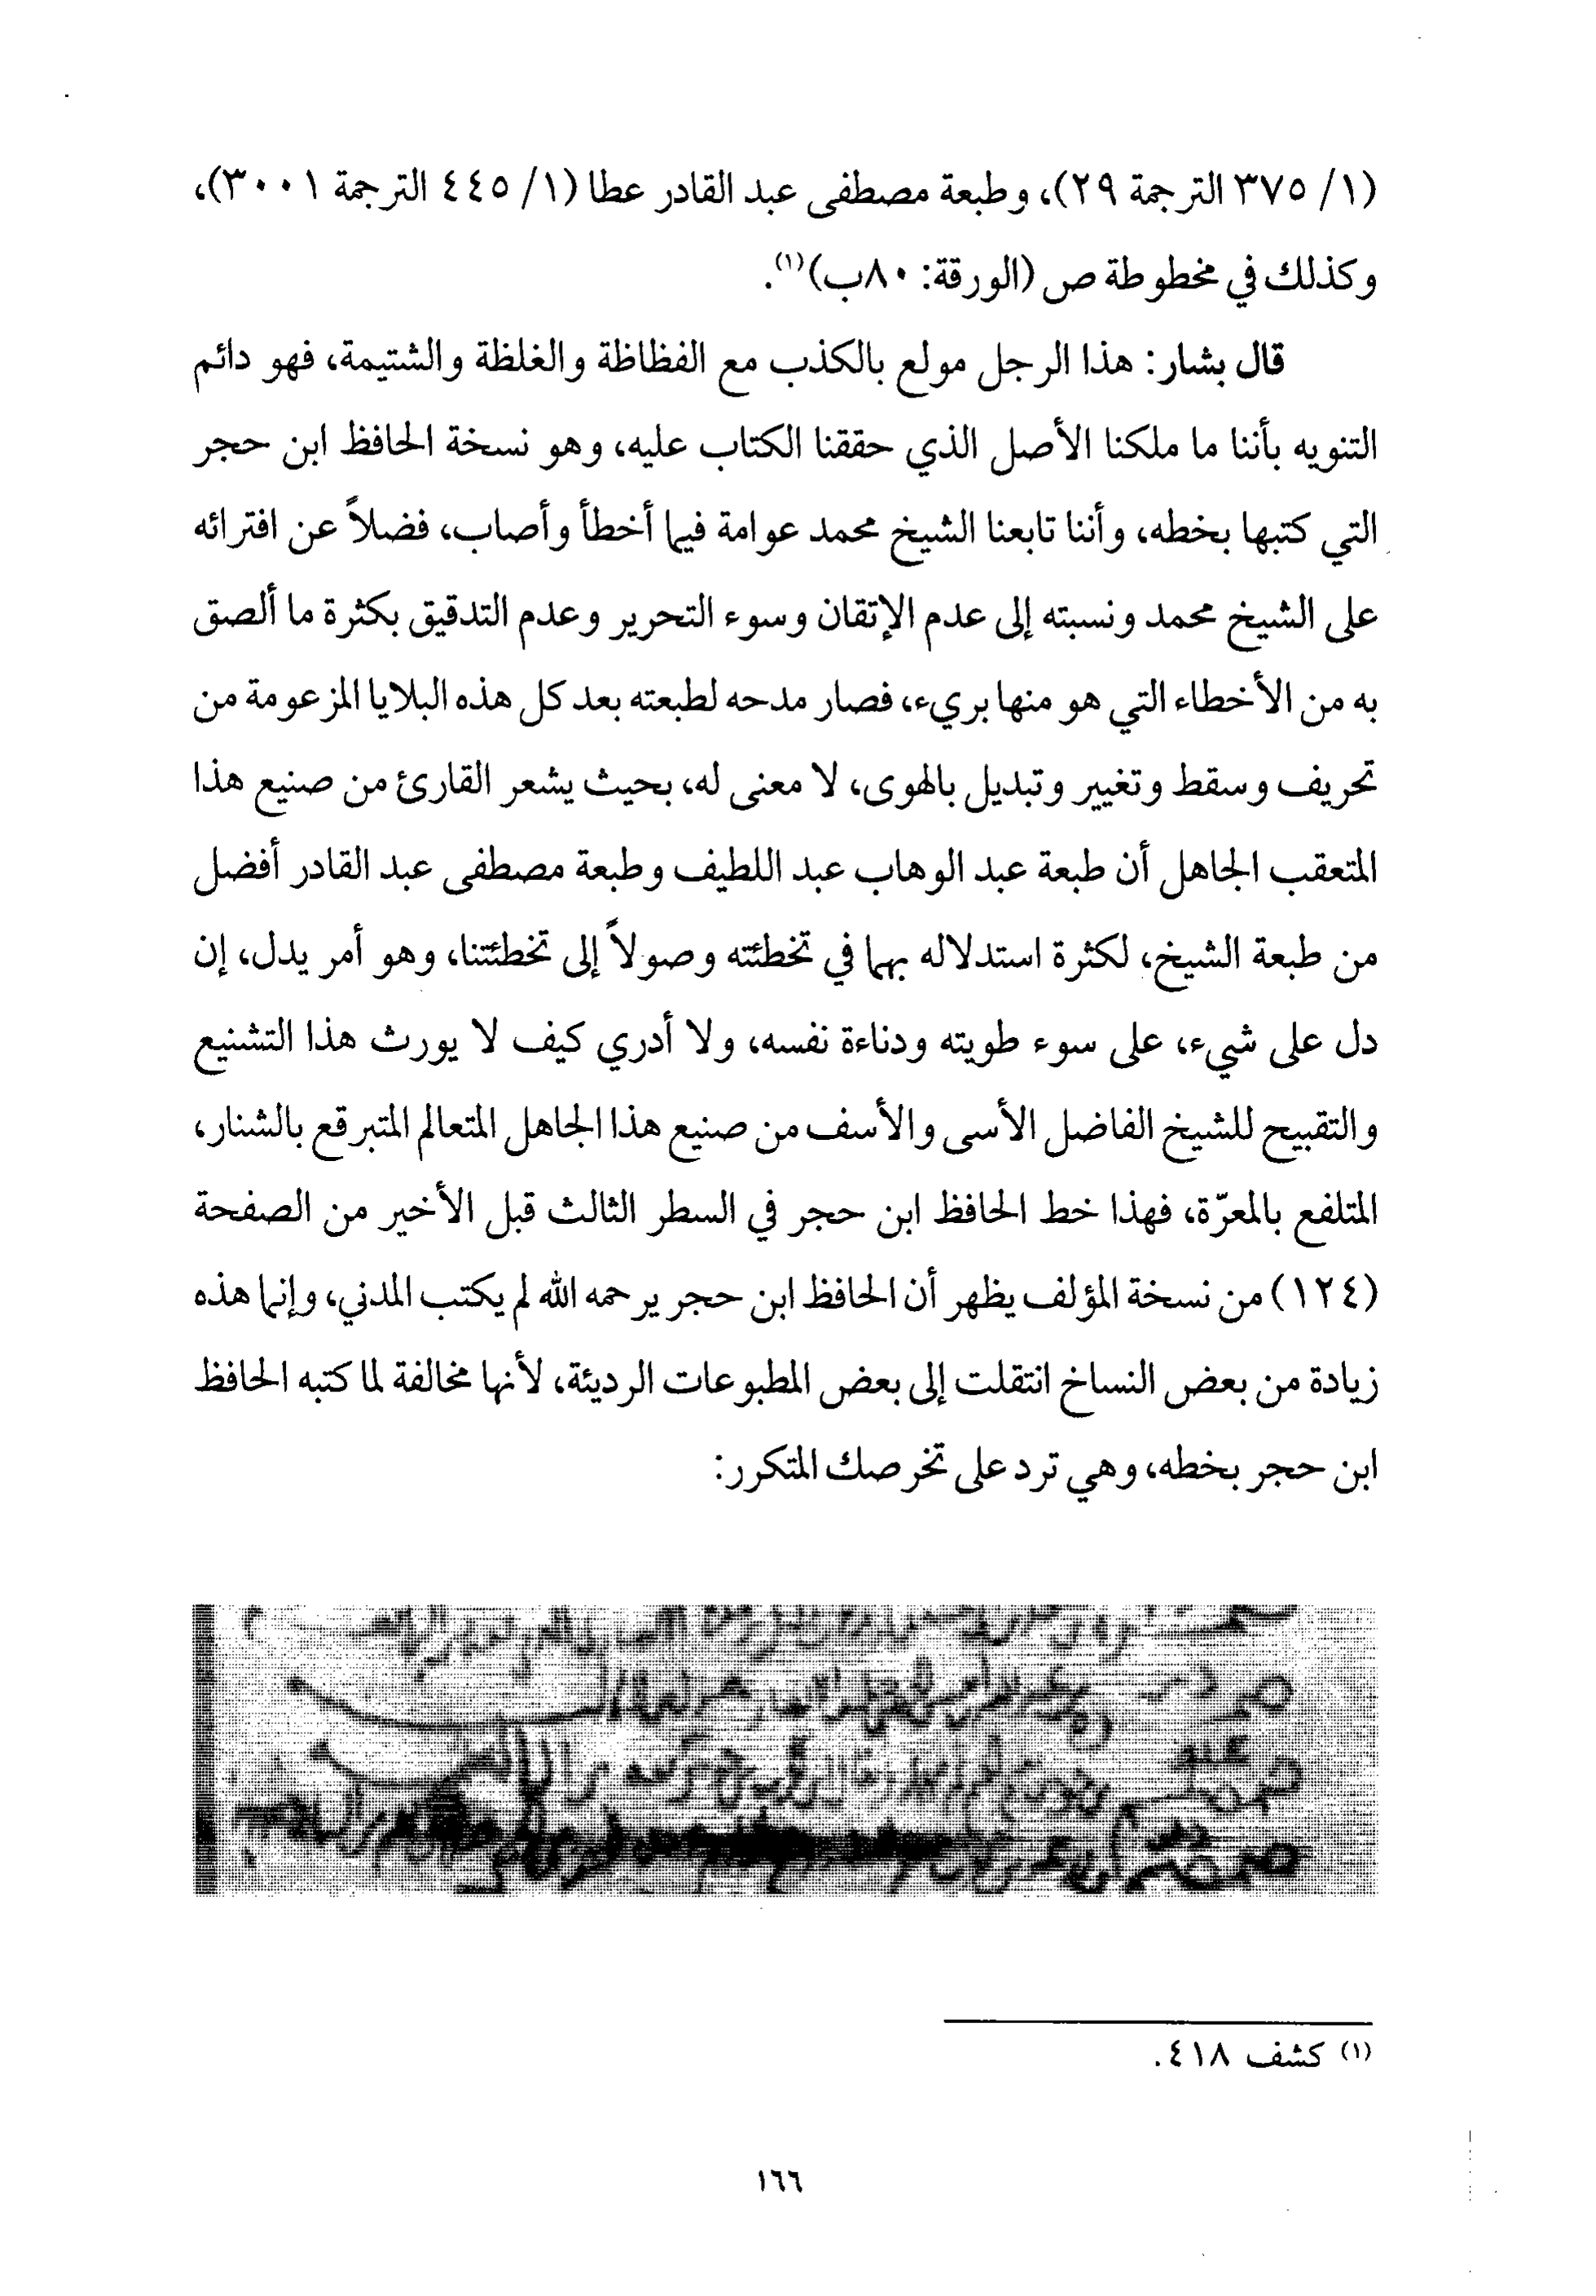 (١/ ٣٧٥ الترجمة ٢٩)، وطبعة مصطفى عبد القادر عطا (١/ ٤٤٥ الترجمة ٣٠٠١)،
وكذلك في مخطوطة ص (الورقة: ٨٠ب)(١).
قال بشار: هذا الرجل مولع بالكذب مع الفظاظة والغلظة والشتيمة، فهو دائم
التنويه بأننا ما ملكنا الأصل الذي حققنا الكتاب عليه، وهو نسخة الحافظ ابن حجر
التي كتبها بخطه، وأننا تابعنا الشيخ محمد عوامة فيما أخطأ وأصاب، فضلاً عن افترائه
على الشيخ محمد ونسبته إلى عدم الإتقان وسوء التحرير وعدم التدقيق بكثرة ما ألصق
به من الأخطاء التي هو منها بريء، فصار مدحه لطبعته بعد كل هذه البلايا المزعومة من
تحريف وسقط وتغيير وتبديل بالهوى، لا معنى له، بحيث يشعر القارئ من صنيع هذا
المتعقب الجاهل أن طبعة عبد الوهاب عبد اللطيف وطبعة مصطفى عبد القادر أفضل
من طبعة الشيخ، لكثرة استدلاله بهما في تخطئته وصولاً إلى تخطئتنا، وهو أمر يدل، إن
دل على شيء، على سوء طويته ودناءة نفسه، ولا أدري كيف لا يورث هذا التشنيع
والتقبيح للشيخ الفاضل الأسى والأسف من صنيع هذا الجاهل المتعالم المتبرقع بالشنار،
المتلفع بالمعرّة، فهذا خط الحافظ ابن حجر في السطر الثالث قبل الأخير من الصفحة
(١٢٤) من نسخة المؤلف يظهر أن الحافظ ابن حجر يرحمه الله لم يكتب المدني، وإنما هذه
زيادة من بعض النساخ انتقلت إلى بعض المطبوعات الرديئة، لأنها مخالفة لما كتبه الحافظ
ابن حجر بخطه، وهي ترد على تخرصك المتكرر:
(١) كشف ٤١٨.
١٦٦